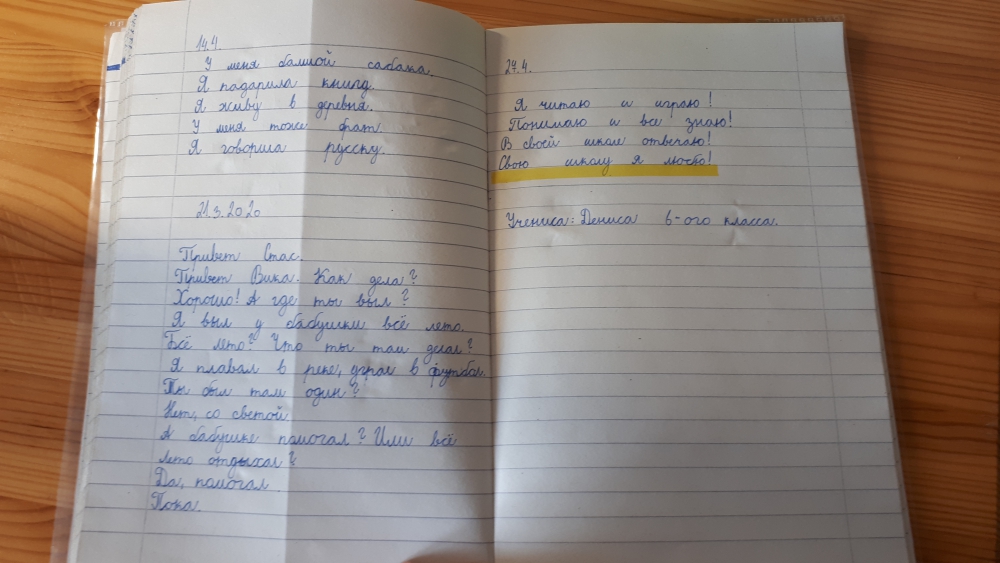 14.4.
У меня балшой сабака.
Я падарила книгд.
Я живу в деревня.
У меня тоже брат.
Я говорила русску.
21.3.2020
Привет Стас.
Привет Вика. Как дела?
Хорошо! А где ты выл?
Я выл д бабушки всё лето.
Бсё лето? Что ты там делал?
Я плавал в реке, играл в футбол.
Ты был там один?
Нет, со светой
А бабушке помогал? Или всё
лето отдыхал?
Да, помогал
Пока.
24.4.
Я читаю и играю!
Понимаю и все знаю!
В своей школе отвечаю!
Свою школу я люблю!
Учениса: Дениса 6-ого класса.